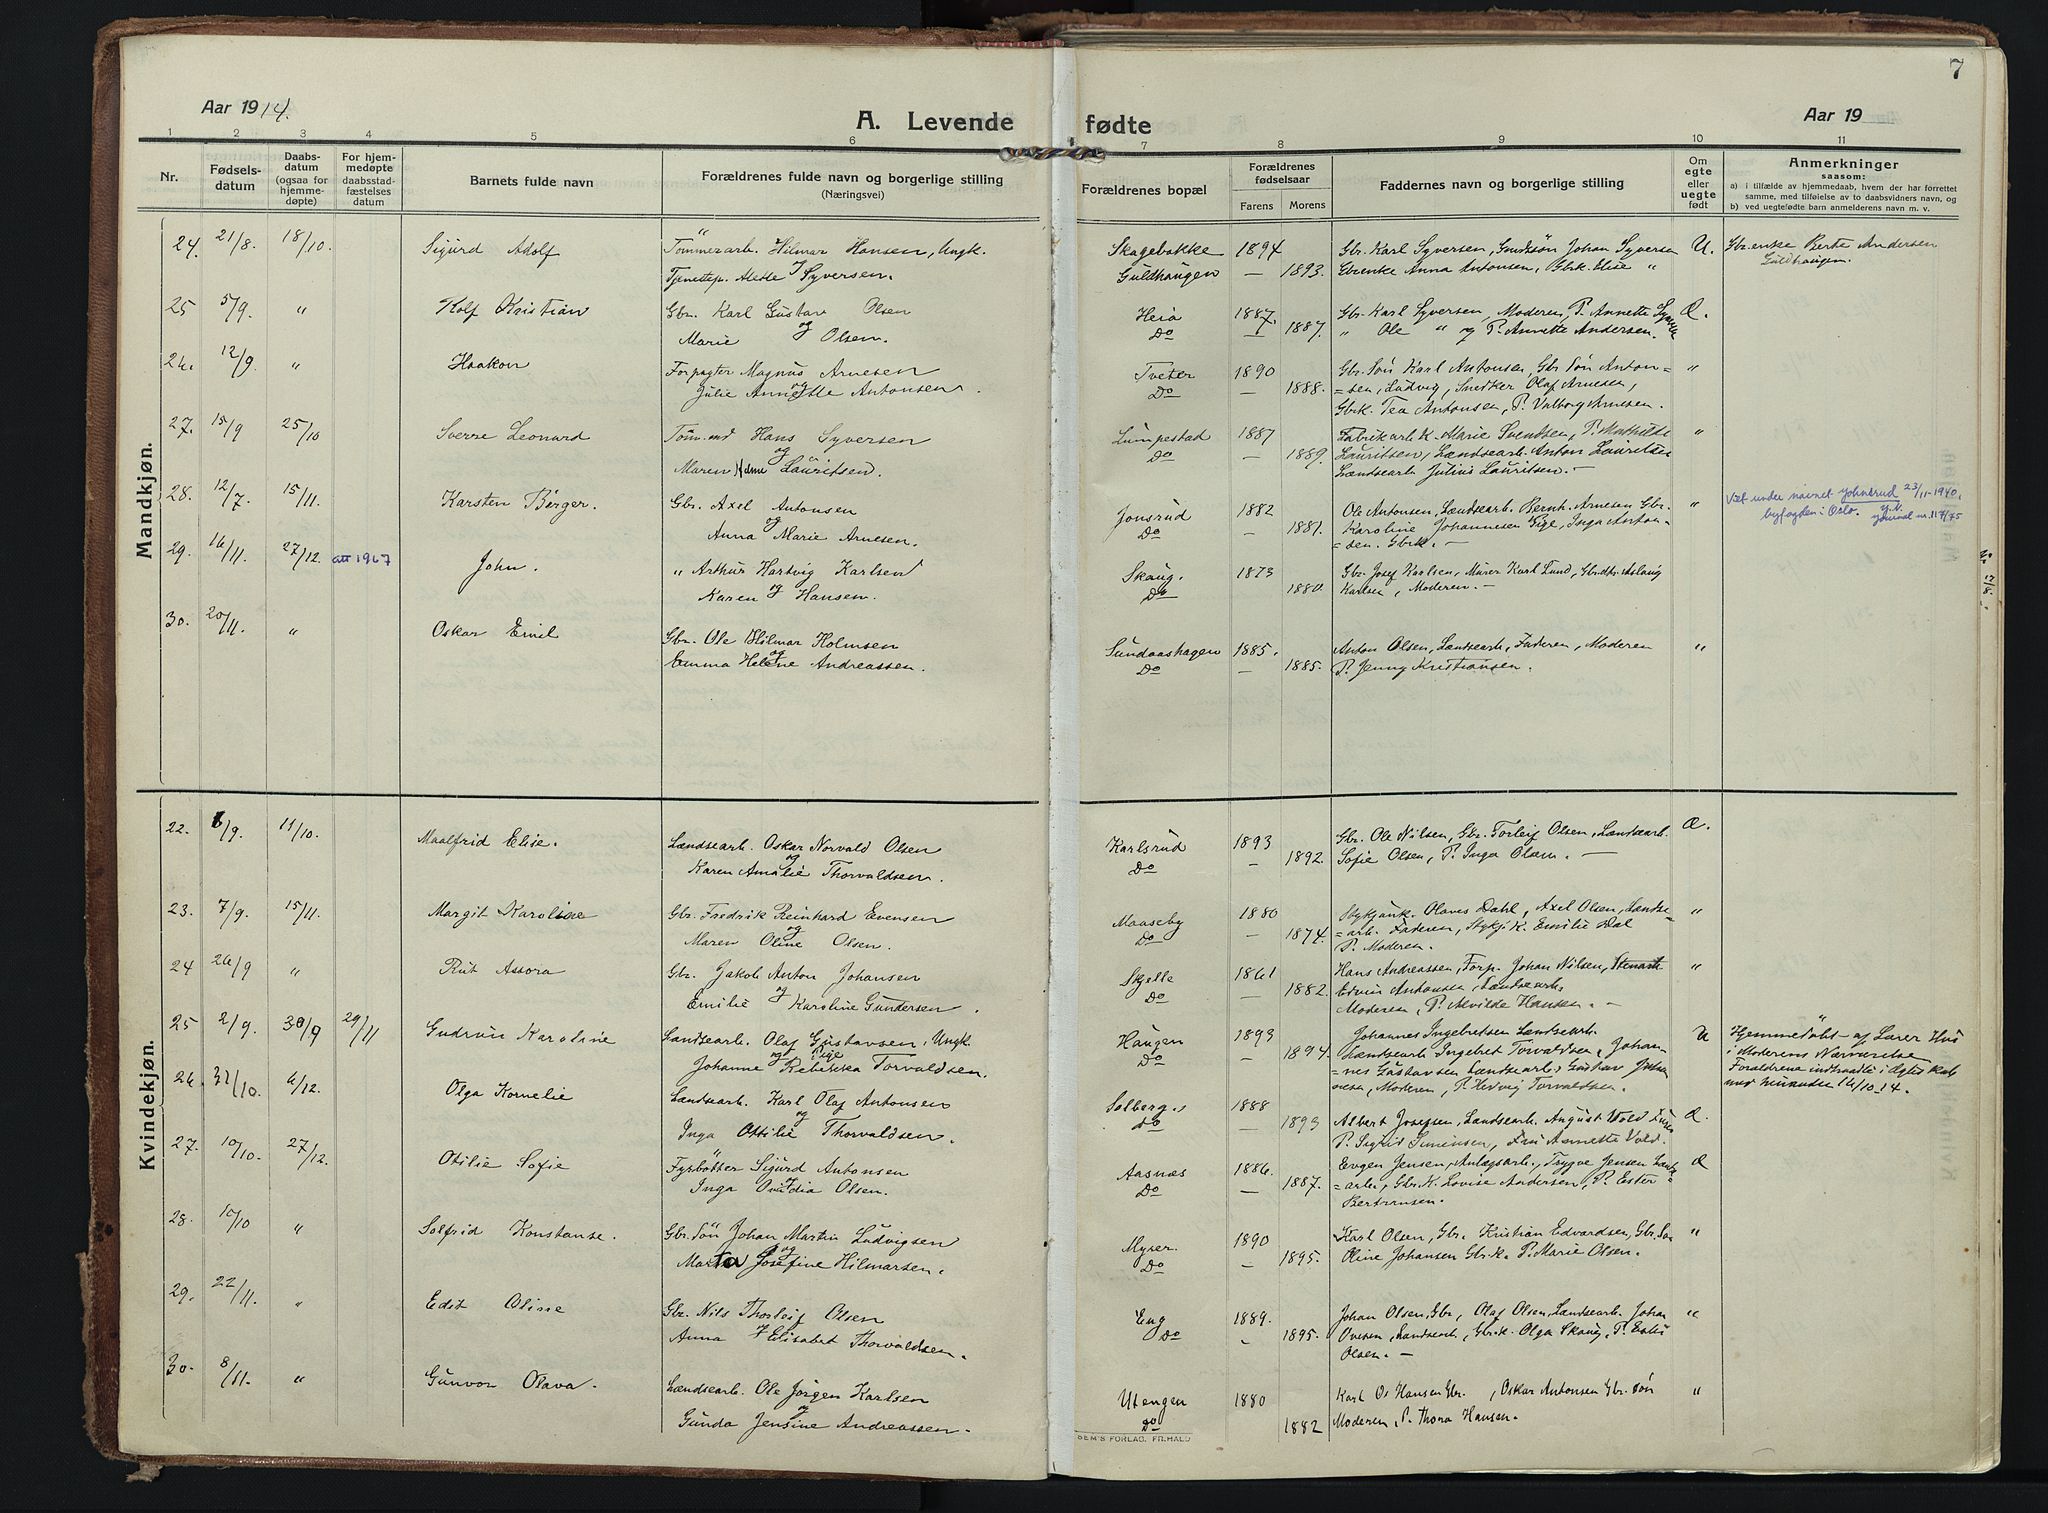 7
Aar 1914.
A. Levende fødte
Aar 19
1 2 3 4 5 6 7 8 9 10 11
Nr.
Fødsels-
datum
Daabs-
datum
(ogsaa for
hjemme-
døpte)
For hjem-
medøpte
daabsstad-
fæstelses
datum
Barnets fulde navn
Forældrenes fulde navn og borgerlige stilling
(Næringsvei)
Forældrenes bopæl
Forældrenes
fødselsaar
Farens Morens
Faddernes navn og borgerlige stilling
Om
egte
eller
uegte
født
Anmerkninger
saasom:
a) i tilfælde av hjemmedaab, hvem der har forrettet
samme, med tilføielse av to daabsvidners navn, og
b) ved uegtefødt barn anmelderens navn m. v.
Mandkjøn.
24. 21/8. 18/10. Sigurd Adolf Tømmerarb. Hilmar Hansen, Ungk. Skagebakke 1894 Gbr. Karl Syversen, Johan Syversen U. Gbr.enke Berte Andersen
Tjenestep. Alette Syversen. Guldhaugen — 1893. Gbrenke Anna Antonsen, Gbrk. Elise " Guldhaugen.
25 5/9. " Rolf Kristian Gbr. Karl Gustav Olsen Heia 1887. Gbr. Karl Syversen, Moderen, P. Annette Æ.
og
Marie Olsen. Do — 1887. " Ole " og P. Annette Andersen.
26. 12/9. " Haakon Forpagter Magnus Arnesen Tveter 1890 Gbr. Søn Karl Antonsen, Gbr Søn Anton= "
og
Julie Annette Antonsen. Do — 1888. =sen, Ludvig, Snedker Olaf Arnesen,
Gbrk. Tea Antonsen, P. Valborg Arnesen.
27. 15/9 25/10 Sverre Leonard Tøm.md Hans Syversen Lumpestad 1887 Fabrikarb. K. Marie Svendsen, P. Mathilde "
og
Maren Lauritsen. Do — 1889. Lauritsen, Landsearb. Anton Lauritsen
Landsearb. Julius Lauritsen. —
28. 12/7. 15/11. Karsten Birger. Gbr. Axel Antonsen Jonsrud 1882 Ole Antonsen, Landsearb. Bernh. Arnesen Gbr. " Viet under navnet Johnsrud 23/11-1940,
og
Anna Marie Arnesen. Do — 1881. Karoline Johannesen Pige, Inga Anton= byfogden i Oslo. journal nr. 117/75
=sen. Gbrk. —
29. 16/11. 27/12. att 1967 John. " Arthur Hartvig Karlsen Skaug. 1873 Gbr. Josef Karlsen, Murer Karl Lund, Gbrdtr. Aslaug "
og
Karen Hansen. Do — 1880. Karlsen, Moderen. —
30. 20/11. " Oskar Emil Gbr. Ole Hilmar Holmsen Sundaashagen 1885. Anton Olsen, Landsearb, Faderen, Moderen "
og
Emma Helene Andreassen. Do — 1885. P. Jenny Kristiansen.
Kvindekjøn.
22. 6/9. 11/10. Maalfrid Elise. Landsearb. Oskar Norvald Olsen Karlsrud 1893 Gbr. Ole Nilsen, Gbr. Torleif Olsen, Landsearb. Æ.
og
Karen Amalie Thorvaldsen. Do — 1892. Sofie Olsen, P. Inga Olsen. —
23. 7/9. 15/11. Margit Karoline Gbr. Fredrik Reinhard Evensen Maaseby 1880 Olaves Dahl, Axel Olsen, Landse= "
og
Maren Oline Olsen. Do — 1874. =arb. Faderen, Emilie Dal
P. Moderen.
24 26/9 " Rut Assora Gbr. Jakob Anton Johansen Skjelle 1861 Hans Andreassen, Forp. Johan Nilsen, Stenarb. "
og
Emilie Karoline Gundersen. Do — 1882. Edvin Antonsen, Landsearb.
Moderen, P. Alvilde Hansen. —
25 2/9. 30/9 29/11 Gudrun Karoline Landsearb. Olaf Gustavsen, Ungk. Haugen 1893 Johannes Ingebretsen Landsearb. U Hjemmedøbt af Lærer Hus
og Pige
Johanne Rebekka Torvaldsen. Do — 1894. Landsearb. Ingebret Torvaldsen, Johan= i Moderens Nærværelse
nes Gustavsen Landsearb, Gustav Forældrene indtraadte i Egteskab
Moderen, P. Hedvig Torvaldsen. 16/10 14.
26. 31/10. 6/12. Olga Kornelie Landsearb. Karl Olaf Antonsen Solberg. 1888
og
Inga Ottilie Thorvaldsen. Do — 1893 Albert Josefsen, Landsearb. August Vold Æ.
P. Sigrid Simensen, Fru Annette Vold.
27. 10/10. 27/12. Otilie Sofie Fyrbøtter Sigurd Antonsen Aasnæs 1886. Evgen Jensen, Anlægsarb., Trygve Jensen Æ
og
Inga Ovidia Olsen. Do — 1887. =arb, Gbr. K. Lovise Andersen, P. Ester
Berntsen.
28. 10/10 " Solfrid Konstanse. Gbr. Søn Johan Martin Ludvigsen Myser. 1890 Karl Olsen, Gbr. Kristian Edvardsen, Gbr. Søn "
og
Marta Josefine Hilmarsen. Do — 1895. Oline Johansen Gbr. K. P. Marie Olsen.
29. 22/11. " Edit Oline Gbr. Nils Thorleif Olsen Eng 1889. Johan Olsen, Gbr, Olaf Olsen, Landsearb. Johan "
og
Anna Elisabet Thorvaldsen. Do — 1895. Ovesen, Landsearb, Gbr.k. Olga Skaug, P. Ester
Olsen. —
30. 8/11. " Gunvor Olava. Landsearb. Ole Jørgen Karlsen Utengen 1880 Karl Os Hansen Gbr., Oskar Antonsen Gbr. søn "
og
Gunda Jensine Andreassen. Do 1882 Moderen, P. Thora Hansen.
SEM'S FORLAG, FR.HALD